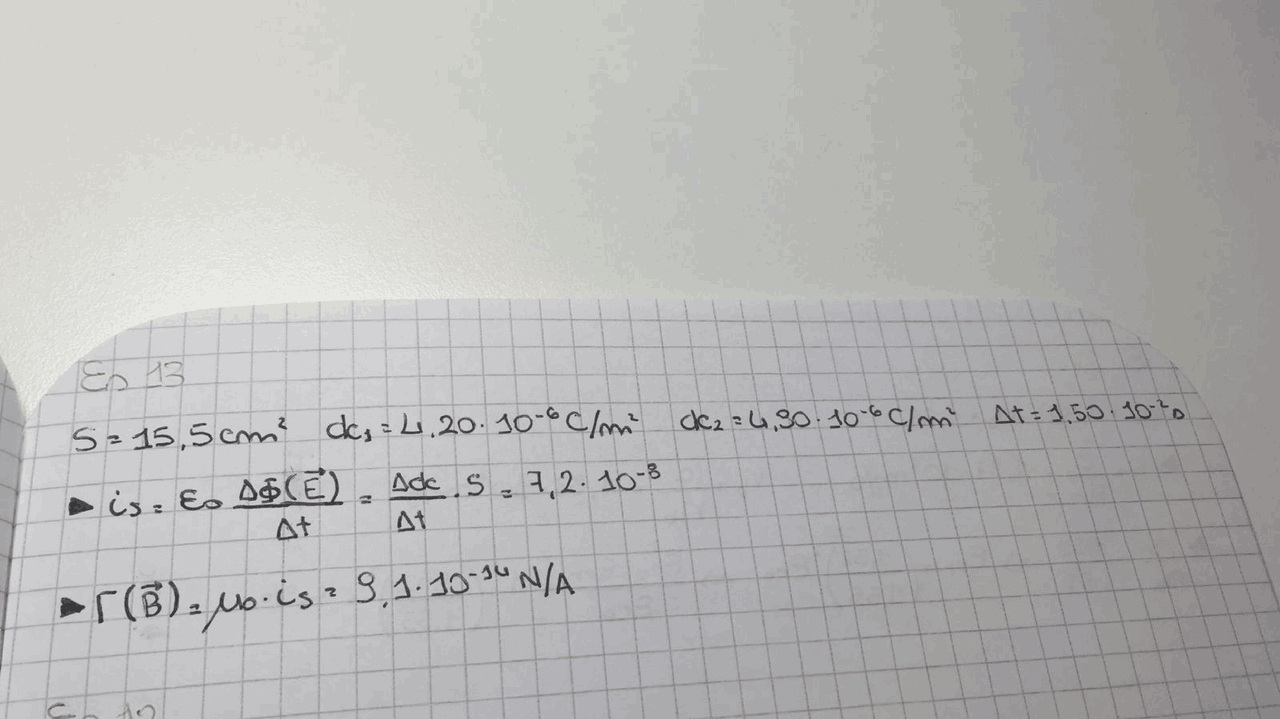 Es 13
S = 15,5 cm² dc₁ = 4,20 · 10⁻⁶ C/m² dc₂ = 4,90 · 10⁻⁶ C/m² Δt = 1,50 · 10⁻² s
► is = ε₀ ΔΦ(E⃗)/Δt = Δdc/Δt · S = 7,2 · 10⁻⁸
► Γ(B⃗) = μ₀ · is = 9,1 · 10⁻¹⁴ N/A